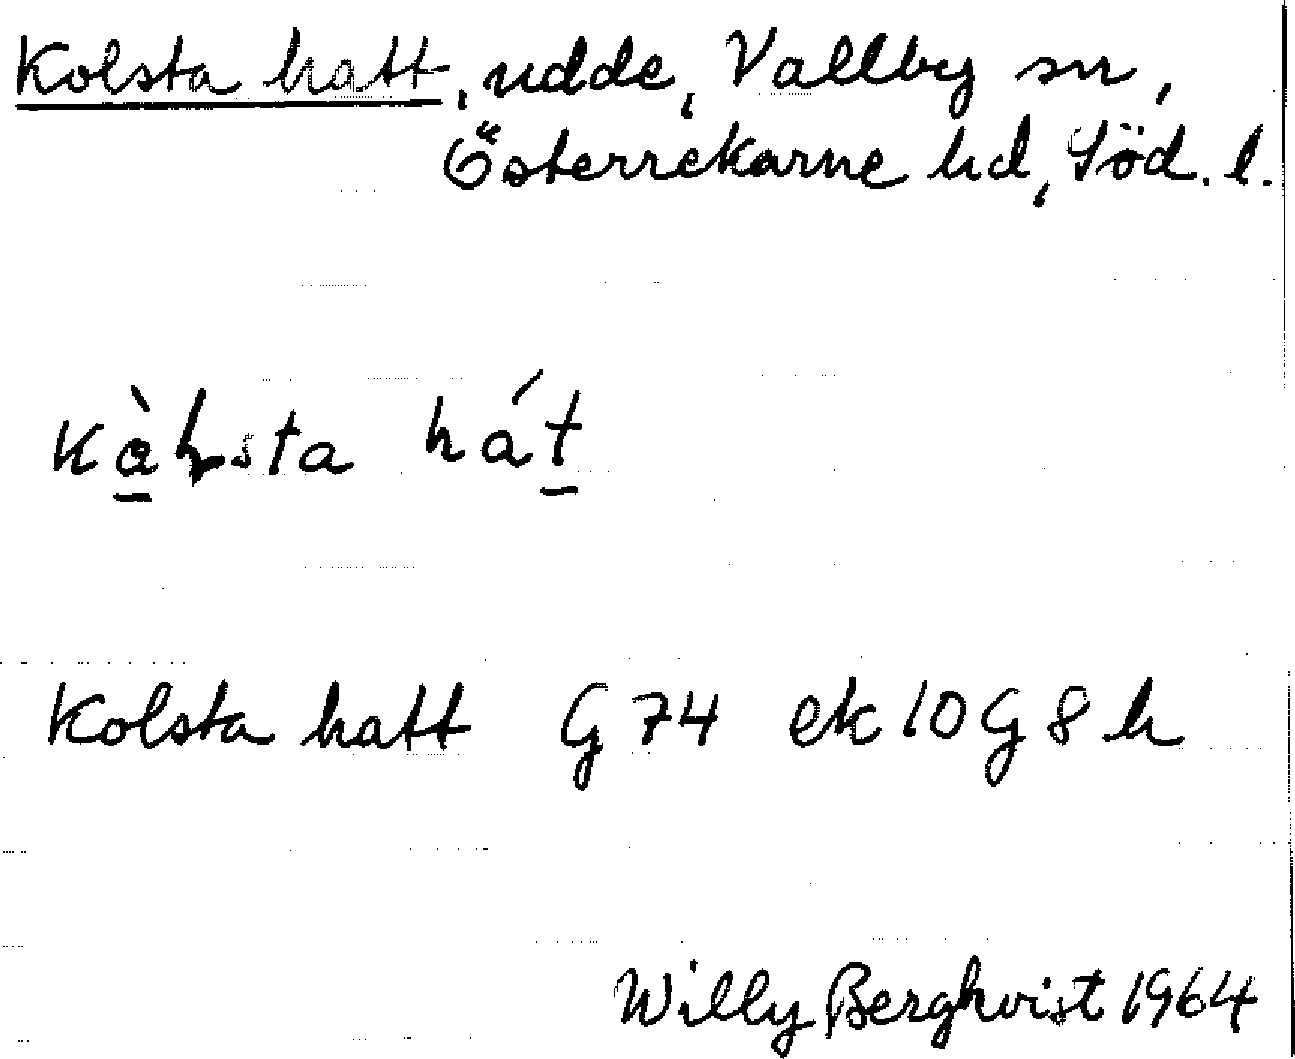 Kolsta hatt, udde, Vallby sn,
Österrekarne hd, Söd. l.
hát
Kolsta hatt G 74 ek 10 G 8 h
Willy Berghvist 1964